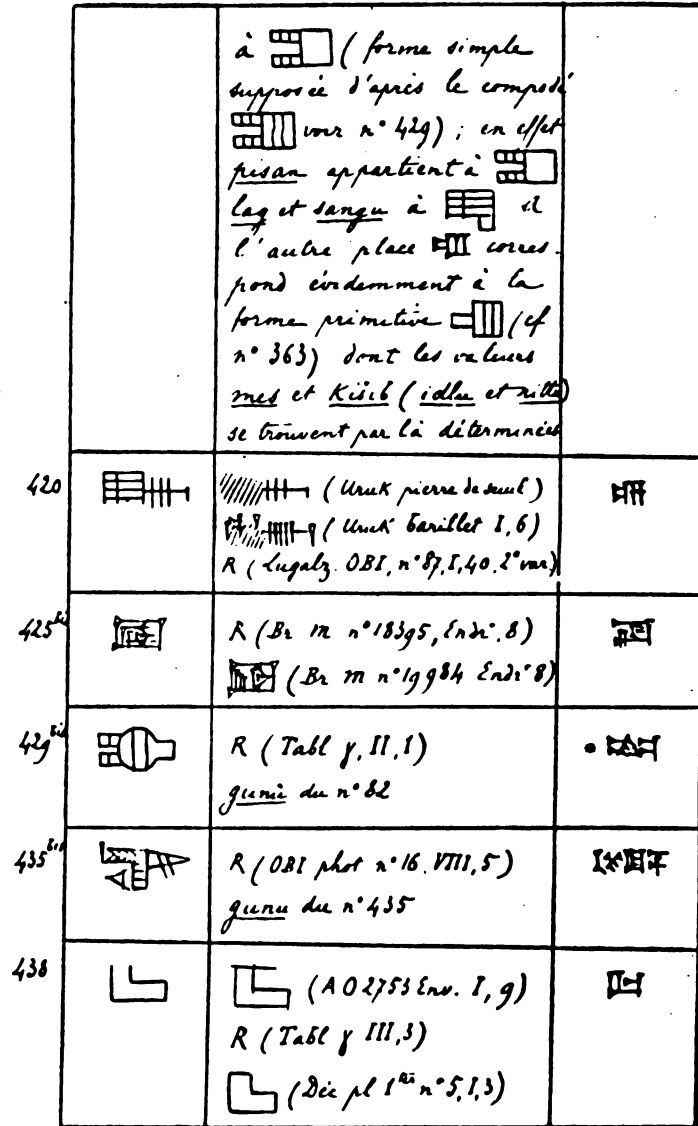 à (forme simple
supposée d'après le composé
voir n° 429) ; en effet
pisan appartient à
laq et sangu à et
l'autre place corres
pond évidemment à la
forme primitive (cf
n° 363) dont les valeurs
mes et Kišib (idlu et
se trouvent par là déterminées
420 (Uruk pierre de seuil)
(Uruk barillet I, 6)
R (Lugalz. OBI, n° 87, I, 40. 2° var)
425bis R (Br m n° 18395, Endr. 8)
(Br m n° 19984 Endr 8)
429bis R (Tabl γ, II, I)
gunû du n° 82
435bis R (OBI phot n° 16. VIII, 5)
gunu du n° 435
438 (AO 2753 Env. I, 9)
R (Tabl γ III, 3)
(Déc pl 1 n° 5, I, 3)